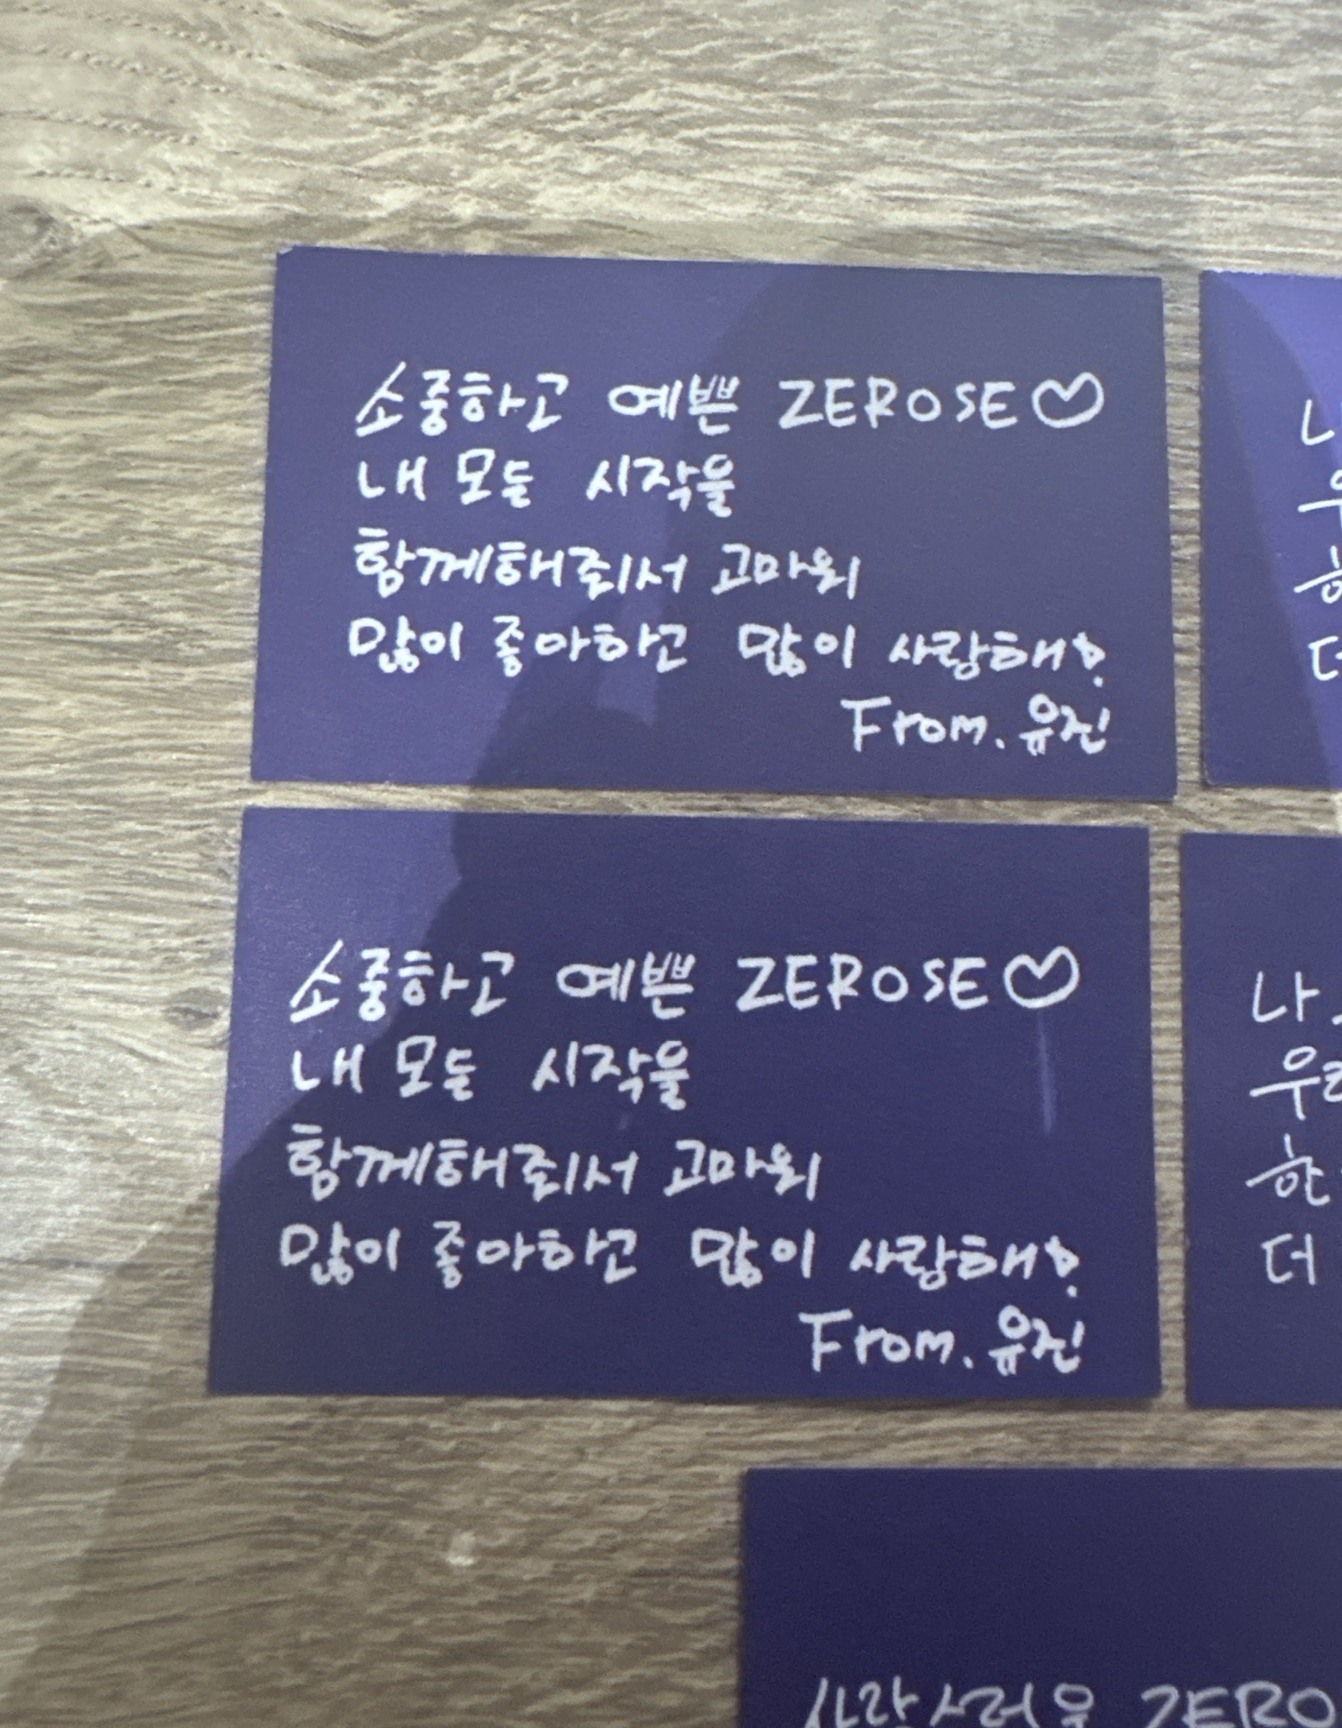 소중하고 예쁜 ZEROSE♡
내 모든 시작을
함께해줘서 고마워
많이 좋아하고 많이 사랑해!
From. 유진
소중하고 예쁜 ZEROSE♡
내 모든 시작을
함께해줘서 고마워
많이 좋아하고 많이 사랑해!
From. 유진
나
더
사랑스러운 ZERO